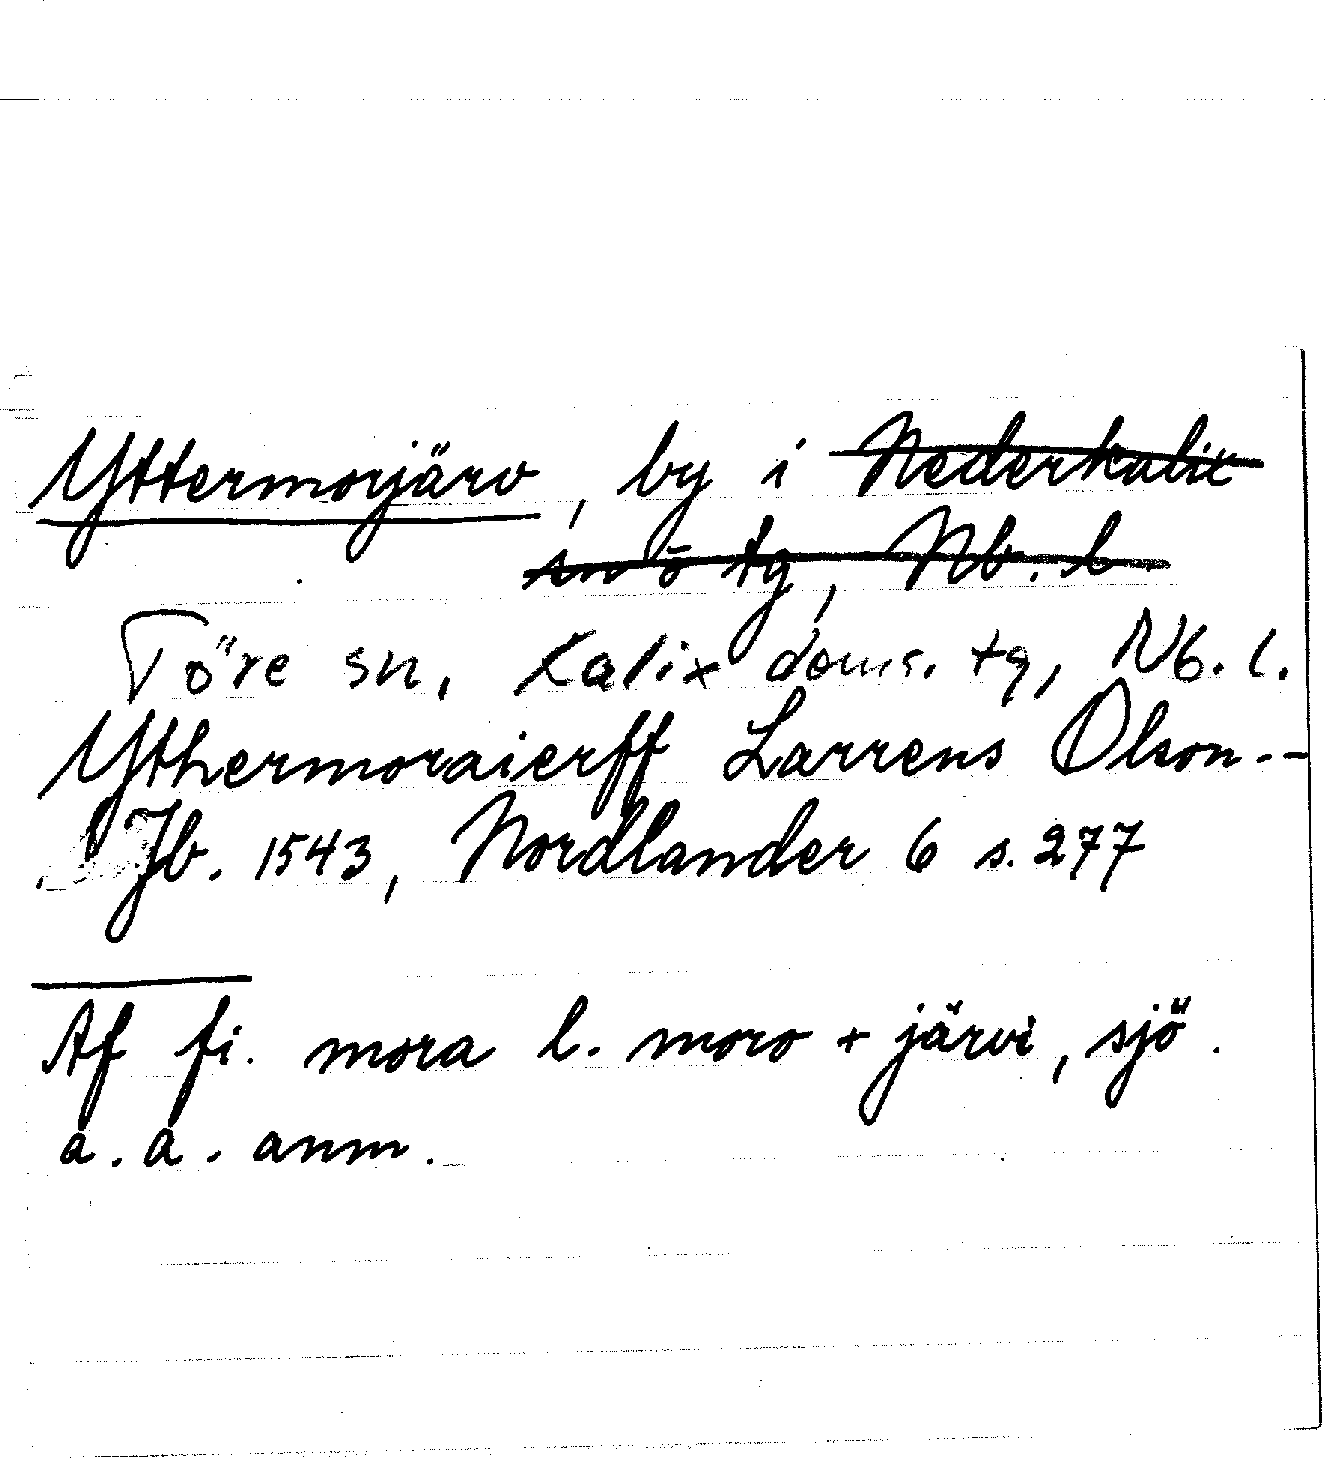 Yttermorjärv, by i Nederkalix
sn o tg, Nb. l.
Töre sn, Kalix doms. tg, Nb. l.
Ythermoraierff Larrens Olson.-
Jb. 1543, Nordlander 6 s. 277
Af fi. mora l. moro + järvi, sjö.
a. a. anm.